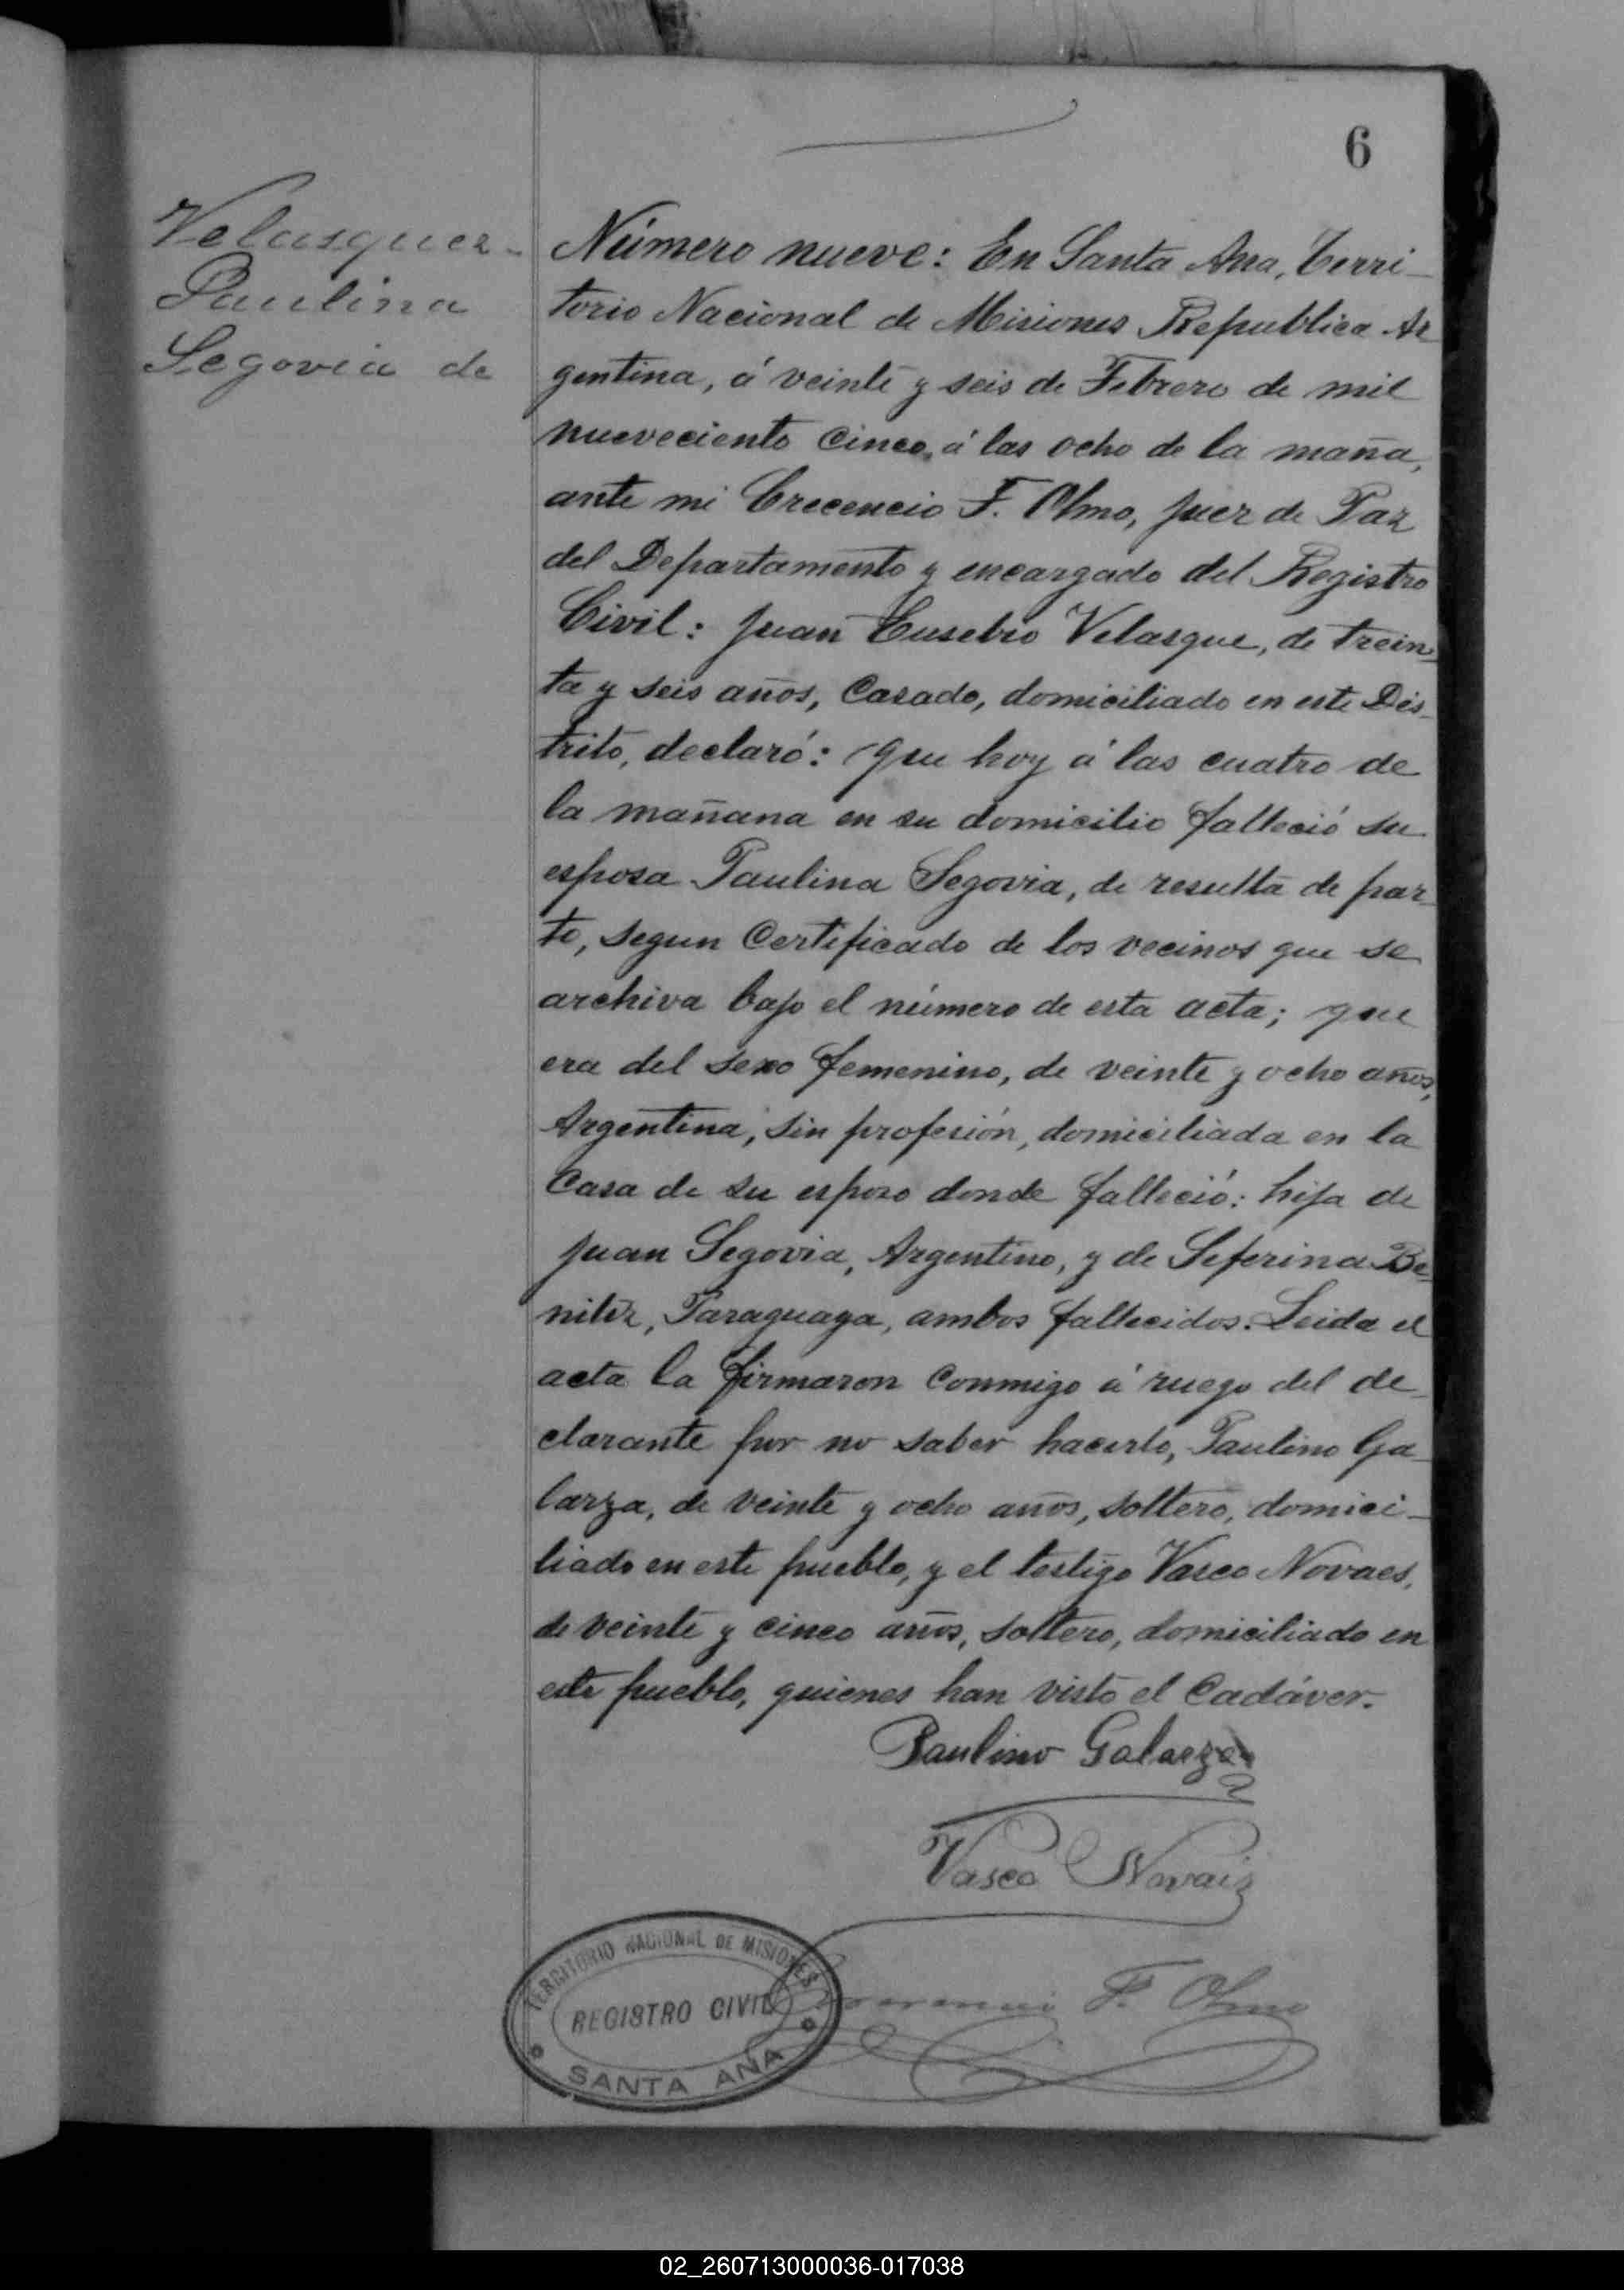 6
Velasquez-
Paulina
Segovia de
Número nueve: En Santa Ana, Terri-
torio Nacional de Misiones Republica Ar
gentina, á veinte y seis de Febrero de mil
nueveciento cinco, á las ocho de la maña,
ante mi Crecencio F. Olmo, Juez de Paz
del Departamento y encargado del Registro
Civil: Juan Eusebio Velasque, de trein-
ta y seis años, Casado, domiciliado en este Dis-
trito, declaró: Que hoy á las cuatro de
la mañana en su domicilio falleció su
esposa Paulina Segovia, de resulta de par-
to, segun Certificado de los vecinos que se
archiva bajo el número de esta acta; que
era del sexo femenino, de veinte y ocho años,
Argentina, sin profesión, domiciliada en la
Casa de su esposo donde falleció: hija de
Juan Segovia, Argentino, y de Seferina Be-
nitez, Paraguaya, ambos fallecidos. Leida el
acta la firmaron conmigo á ruego del de-
clarante por no saber hacerlo, Paulino Ga-
larza, de veinte y ocho años, soltero, domici-
liado en este pueblo, y el testigo Vasco Novaes,
de veinte y cinco años, soltero, domiciliado en
este pueblo, quienes han visto el Cadáver.
Paulino Galarza
Vasco Novais
F. Olmo
TERRITORIO NACIONAL DE MISIONES
REGISTRO CIVIL
SANTA ANA
02_260713000036-017038